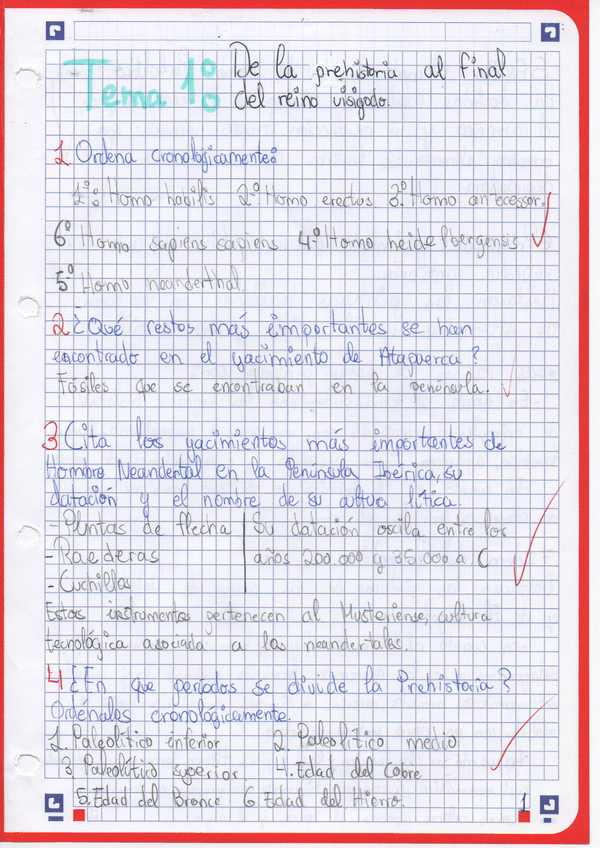 Tema 1º: De la prehistoria al final
del reino visigodo.
1 Ordena cronológicamente:
1º: Homo habilis 2º Homo erectus 3º Homo antecessor.
6º Homo sapiens sapiens 4º Homo heidelbergensis
5º Homo neanderthal
2 ¿Qué restos más importantes se han
encontrado en el yacimiento de Atapuerca?
Fósiles que se encontraban en la península.
3 Cita los yacimientos más importantes de
Hombre Neandental en la Península Ibérica, su
datación y el nombre de su cultua lítica.
- Puntas de flecha | Su datación oscila entre los
- Raederas | años 200 000 y 35 000 a C
- Cuchillas
Estos instrumentos pertenecen al Musteriense, cultura
tecnológica asociada a los neandertales.
4 ¿En que periodos se divide la Prehistoria?
Ordénalos cronológicamente.
1. Paleolítico inferior 2. Paleolítico medio
3 Paleolítico superior 4. Edad del Cobre
5. Edad del Bronce 6 Edad del Hierro.
1